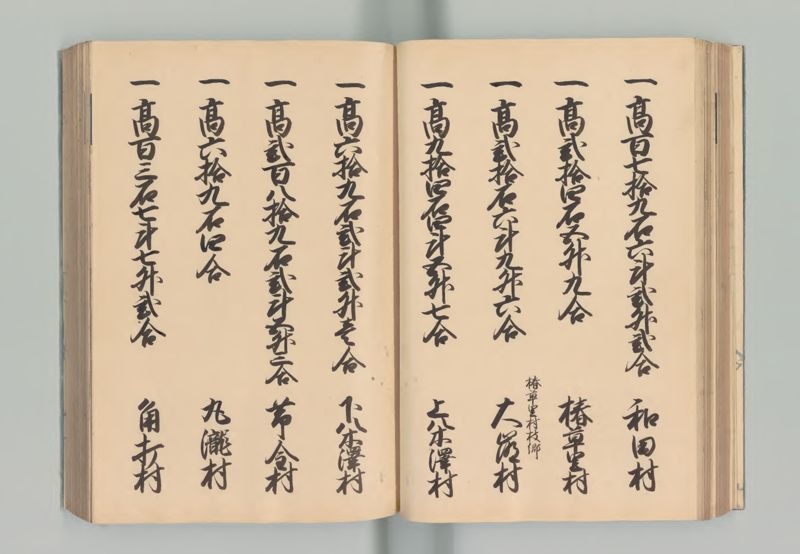 一 高百七拾九石六斗弐升弐合 和田村
一 高弐拾四石五升九合 椿草里村
椿草里村枝郷
一 高弐拾石六斗九升六合 大崩村
一 高九拾四石四斗五升七合 上八木澤村
一 高六拾九石弐斗弐升壱合 下八木澤村
一 高弐百八拾九石弐斗五升二合 草合村
一 高六拾九石四合 丸瀧村
一 高百三石七斗七升弐合 角打村